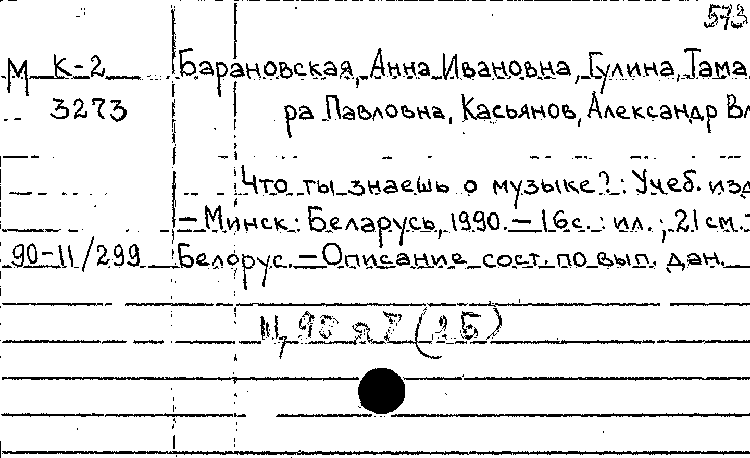 573
М К-2 Барановская, Анна Ивановна, Гулина, Тама
3273 ра Павловна, Касьянов, Александр Вл
Что ты знаешь о музыке?: Учеб. изд
– Минск: Беларусь, 1990. – 16с.: ил.; 21см. –
90-11/299 Белорус. – Описание сост. по вып. дан.
Щ, 98 я 7 (2Б)